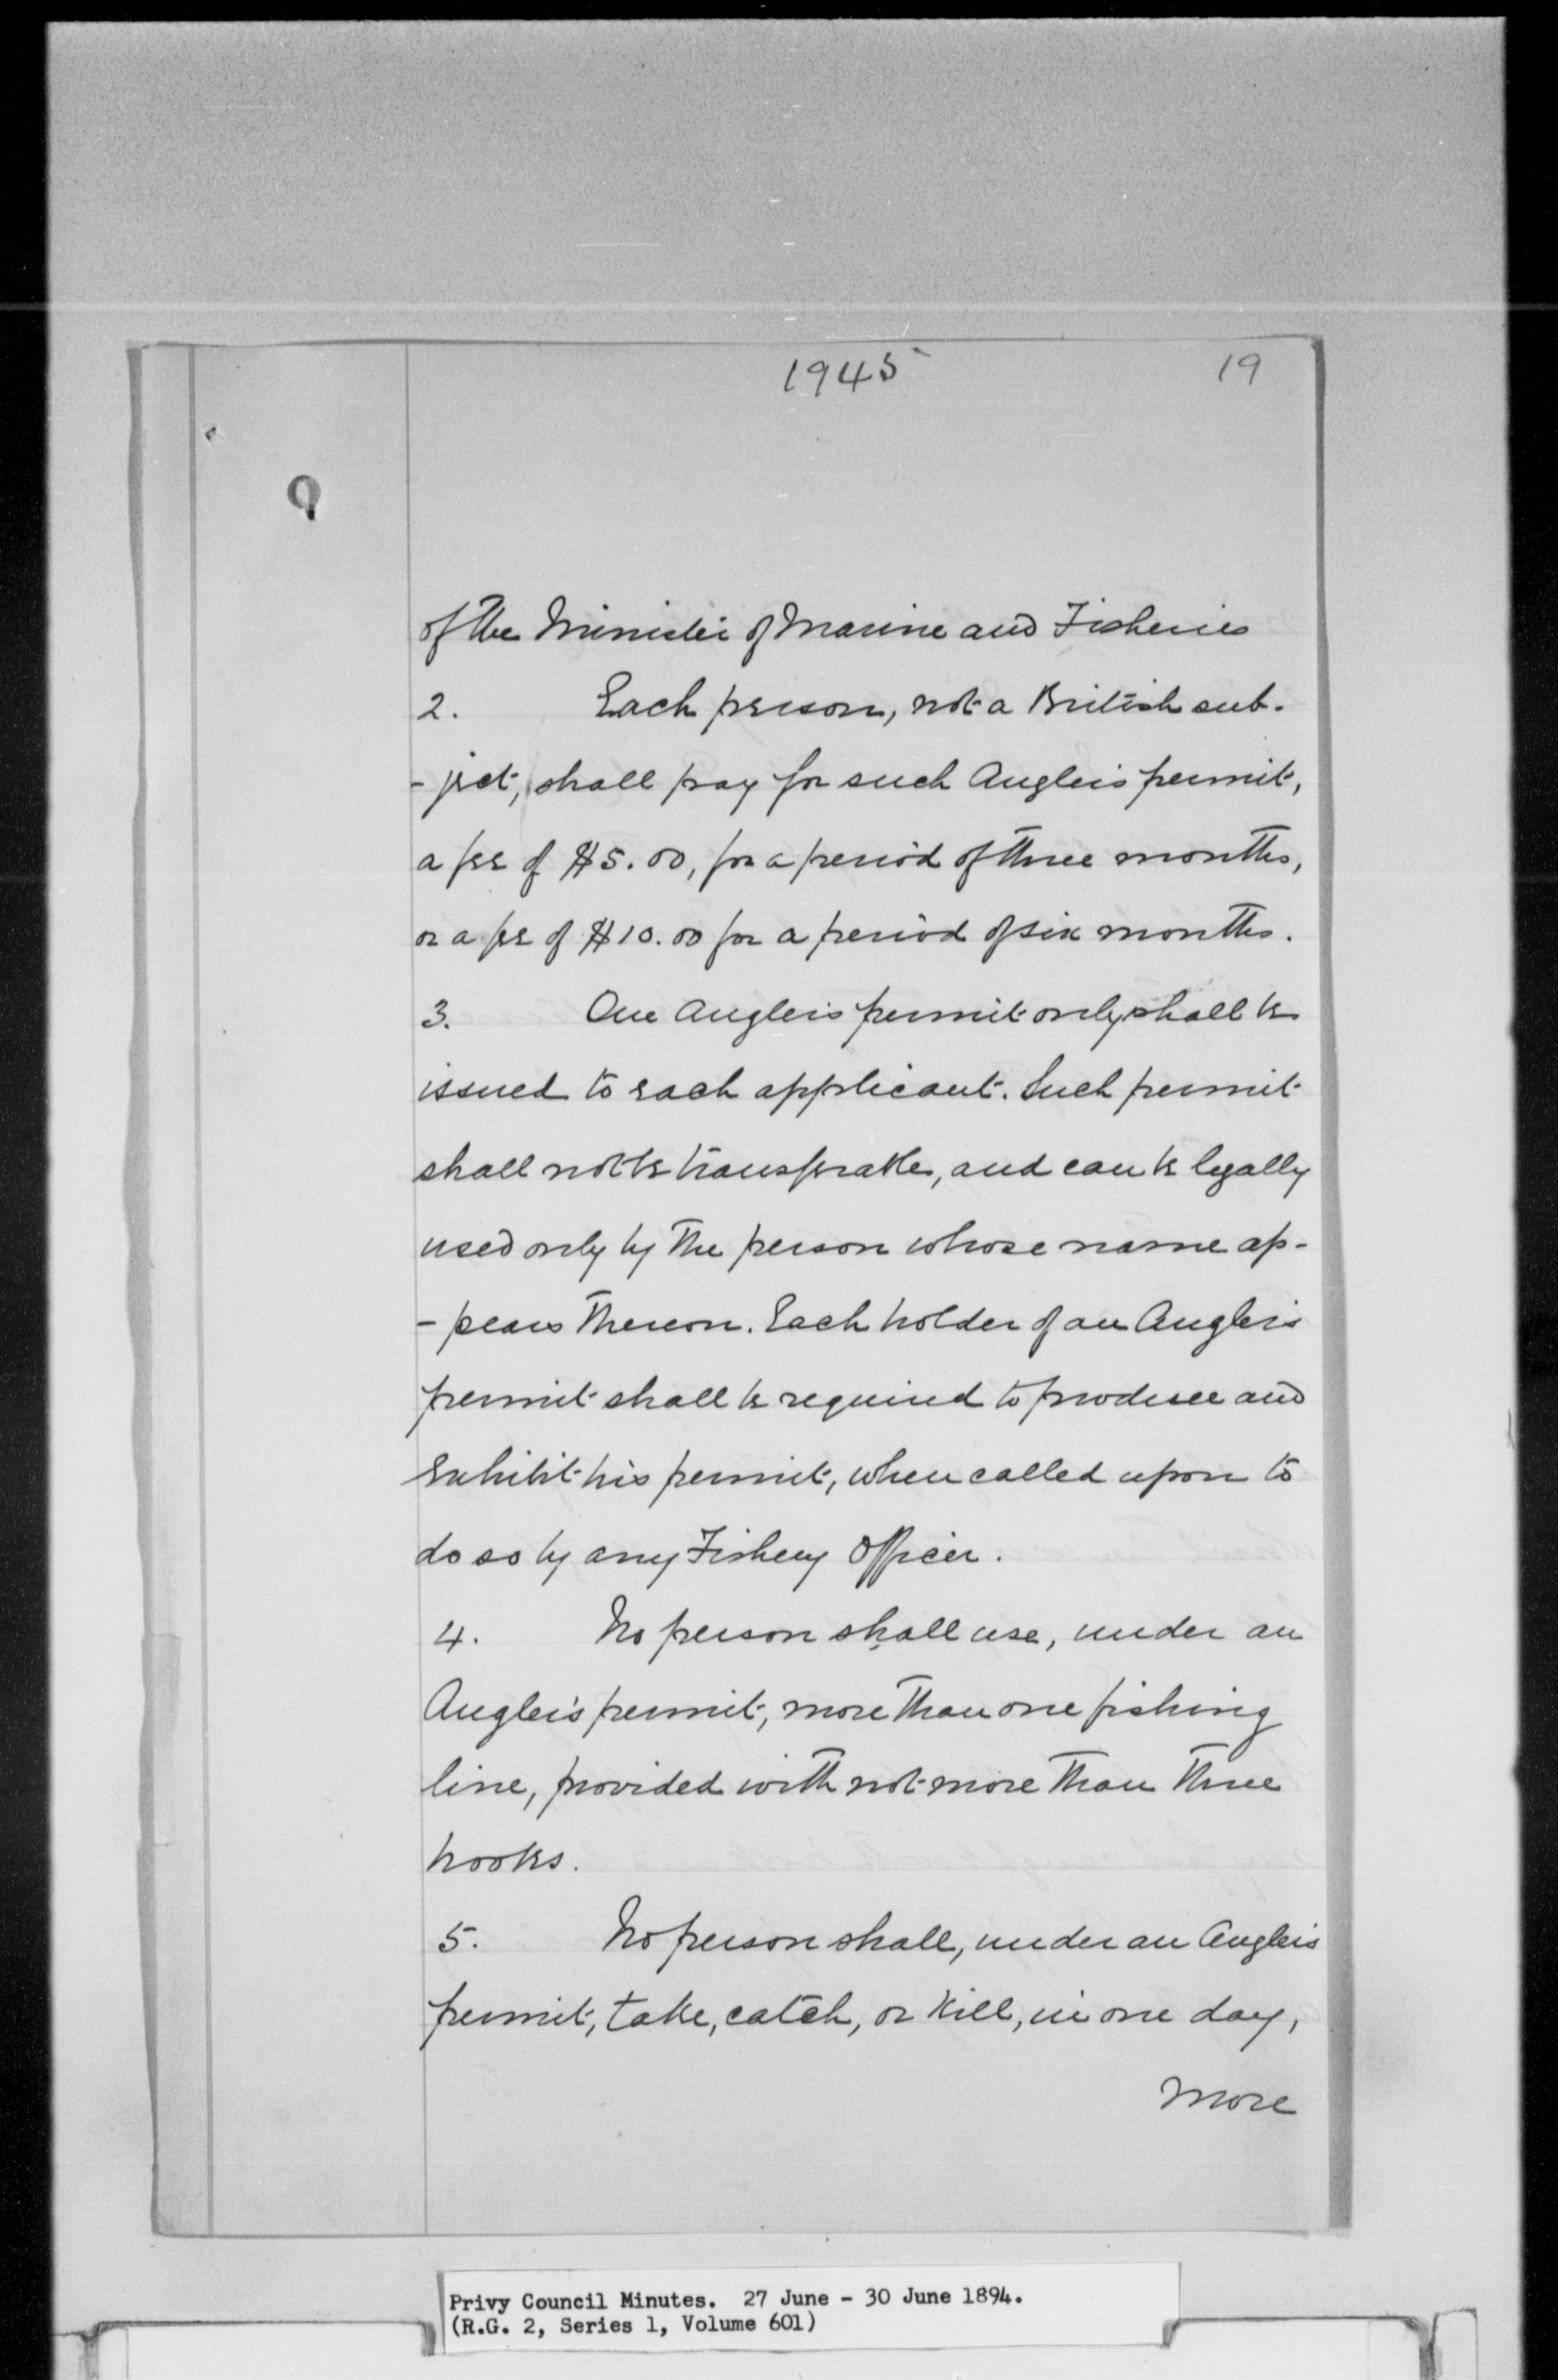 1945
19
of the Minister of Marine and Fisheries
2. Each person, not a British sub-
-ject, shall pay for such Angler's permit,
a fee of $5.00, for a period of three months,
or a fee of $10.00 for a period of six months.
3. One Angler's permit only shall be
issued to each applicant. Such permit
shall not be transferable, and can be legally
used only by the person whose name ap-
-pears thereon. Each holder of an Angler's
permit shall be required to produce and
exhibit his permit, when called upon to
do so by any Fishery Officer.
4. No person shall use, under an
Angler's permit, more than one fishing
line, provided with not more than three
hooks.
5. No person shall, under an Angler's
permit, take, catch, or kill, in one day,
more
Privy Council Minutes. 27 June - 30 June 1894.
(R.G. 2, Series 1, Volume 601)